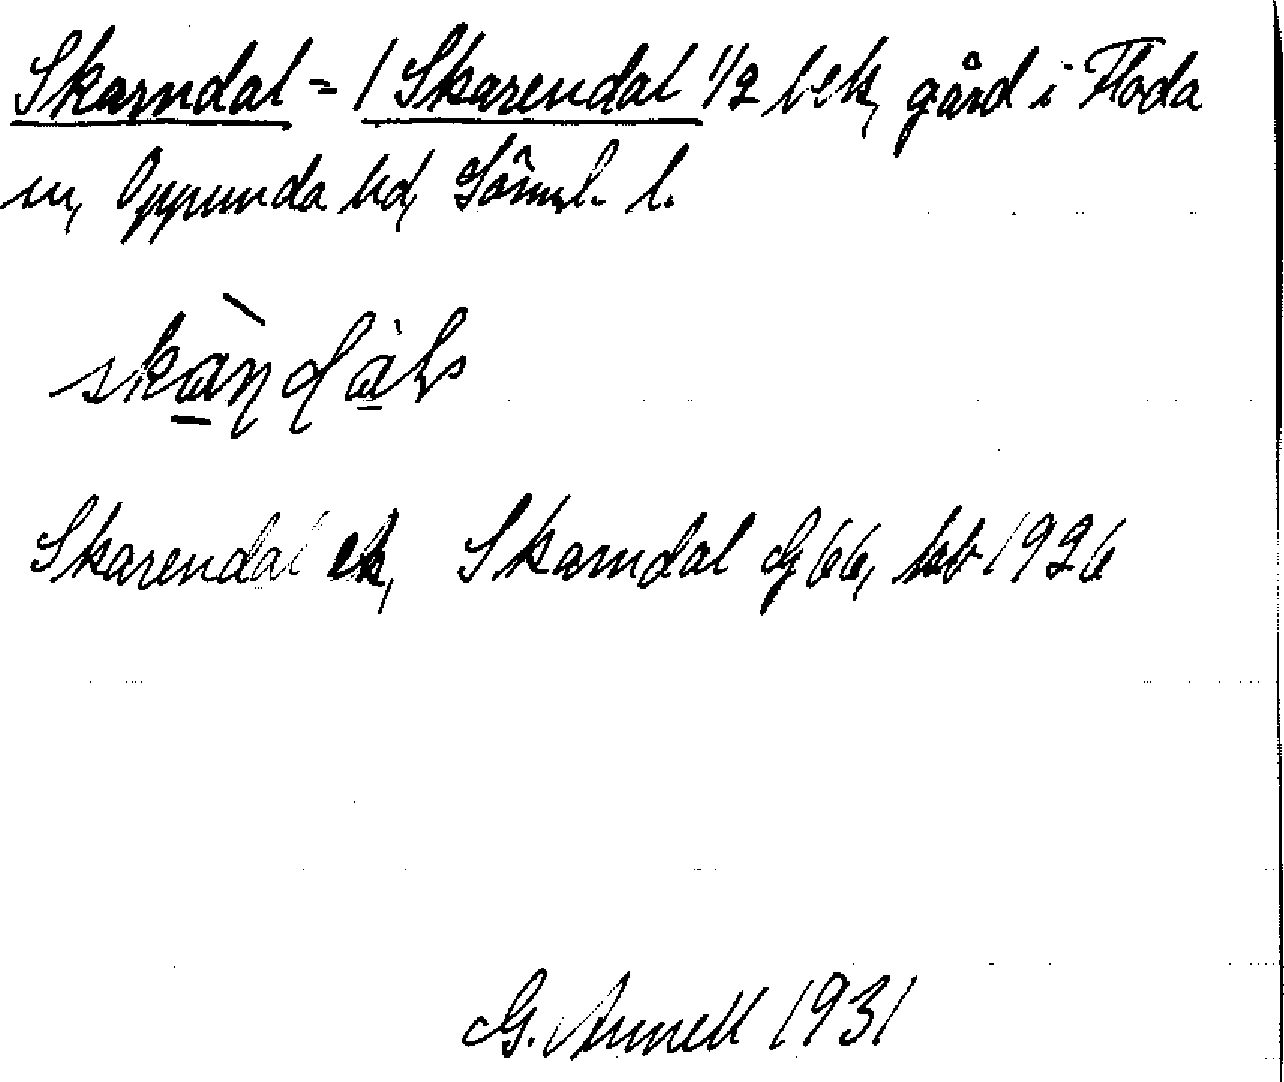 Skarndal = / Skarendal 1/2 bek, gård i Floda
sn, Oppunda hd, Söml. l.
Skarendal ek, Skarndal G 66, kb 1926
G. Annell 1931